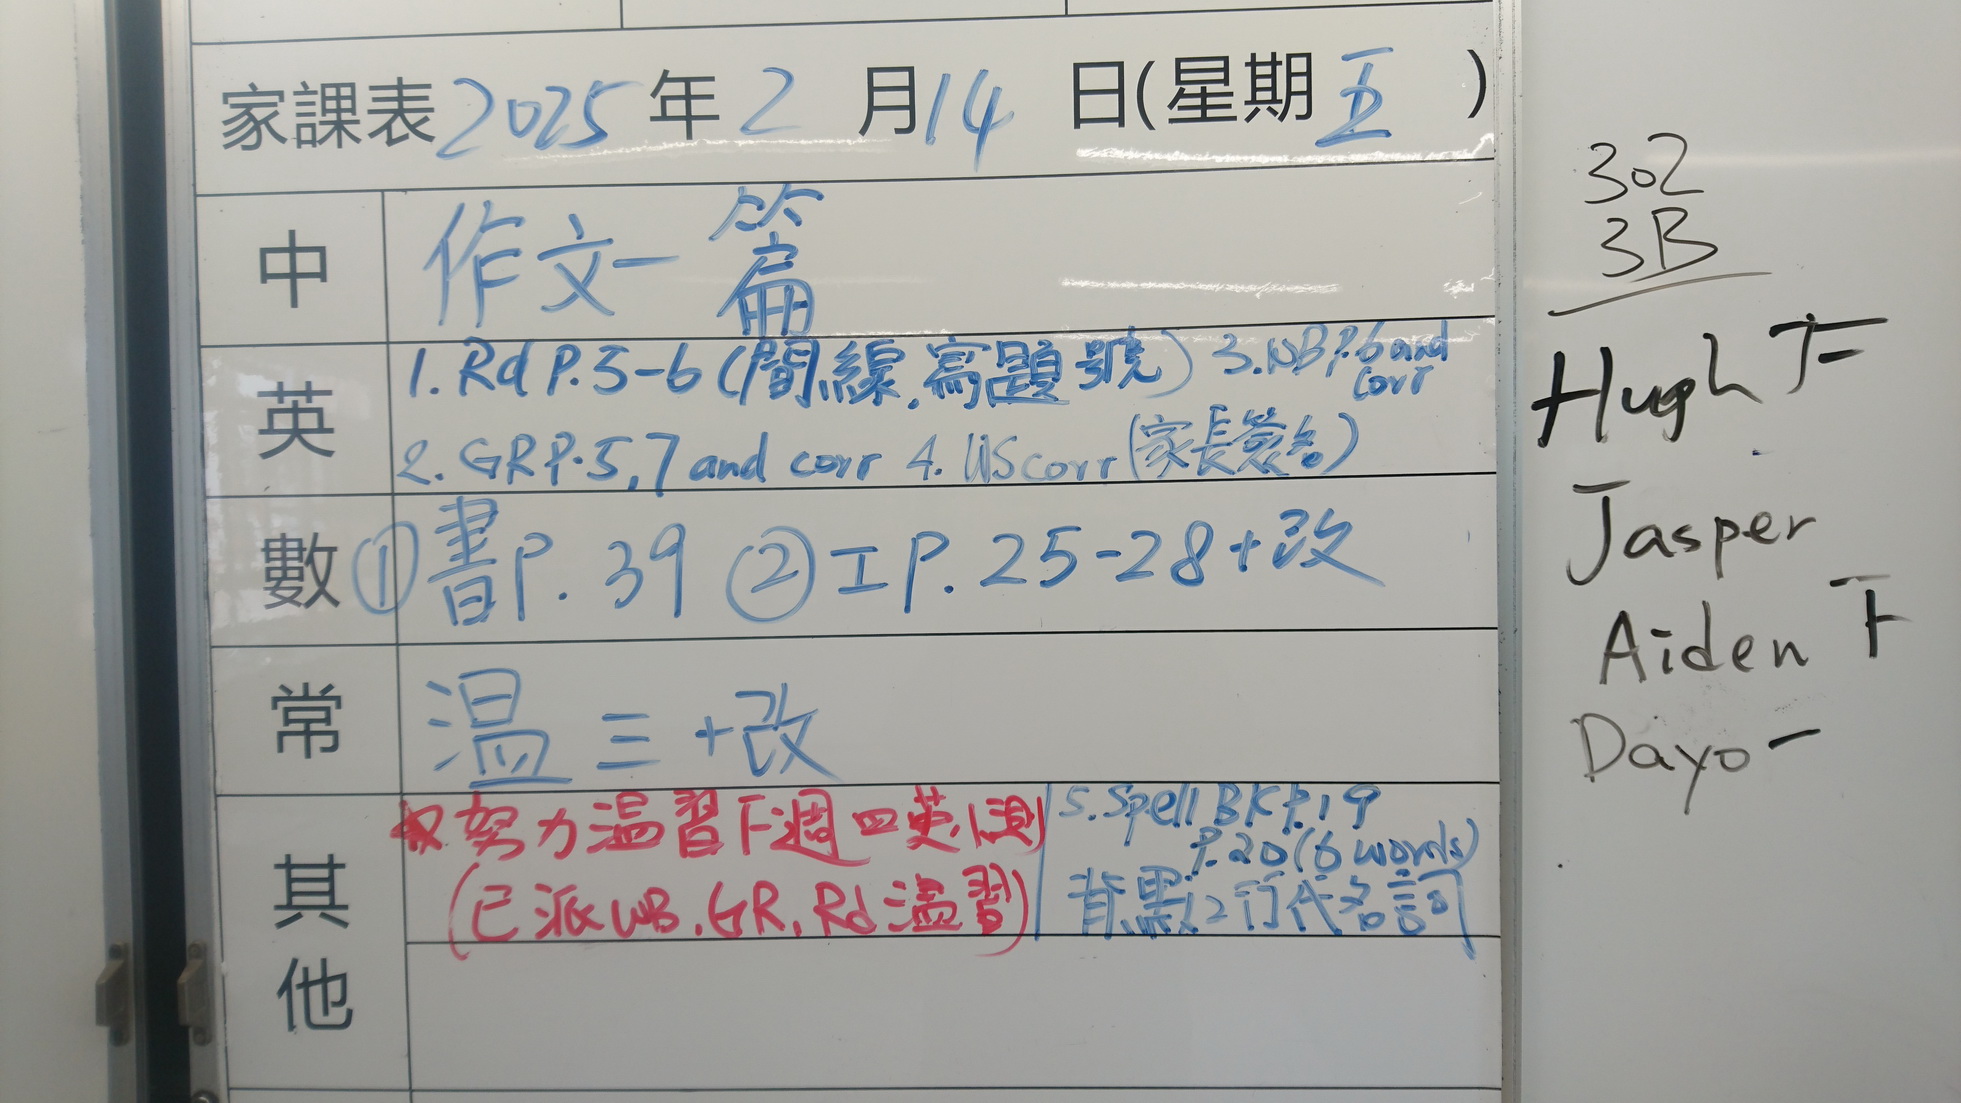 家課表 2025 年 2 月 14 日(星期 五 )
中 作文一篇
英 1. Rd P.5-6 (間線,寫題號) 3. WB P.6 and corr
2. GR P.5,7 and corr 4. WS corr (家長簽名)
數 ① 書P. 39 ② 工P. 25-28+改
常 溫三+改
其他
努力溫習下週四英測
(已派WB, GR, Rd溫習)
5. Spell BK P.19
P.20 (6 words)
背默2行代名詞
302
3B
Hugh 下
Jasper
Aiden 下
Dayo 一